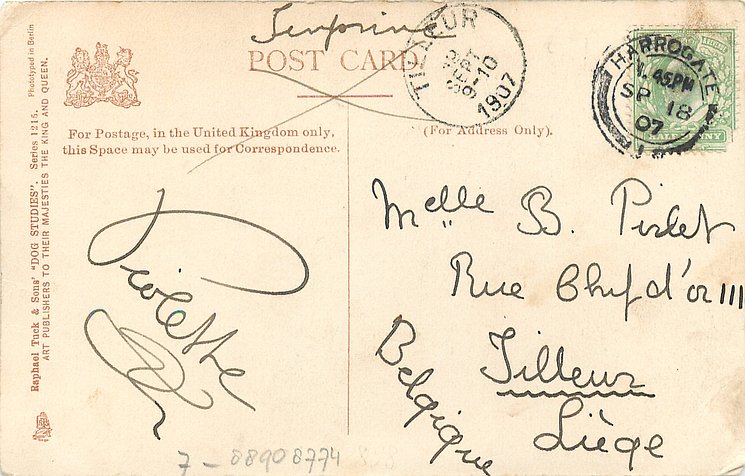 POST CARD
TILLEUR
SEPT
10
1907
HARROGATE
1.45PM
SP 18
07
HALFPENNY
For Postage, in the United Kingdom only,
this Space may be used for Correspondence.
(For Address Only).
Raphael Tuck & Sons' "DOG STUDIES". Series 1215.
ART PUBLISHERS TO THEIR MAJESTIES THE KING AND QUEEN.
Phototyped in Berlin
Violette
Melle B. Pirlet
Rue Chef d'or 111
Tilleur
Liège
Belgique
7 - 88908774